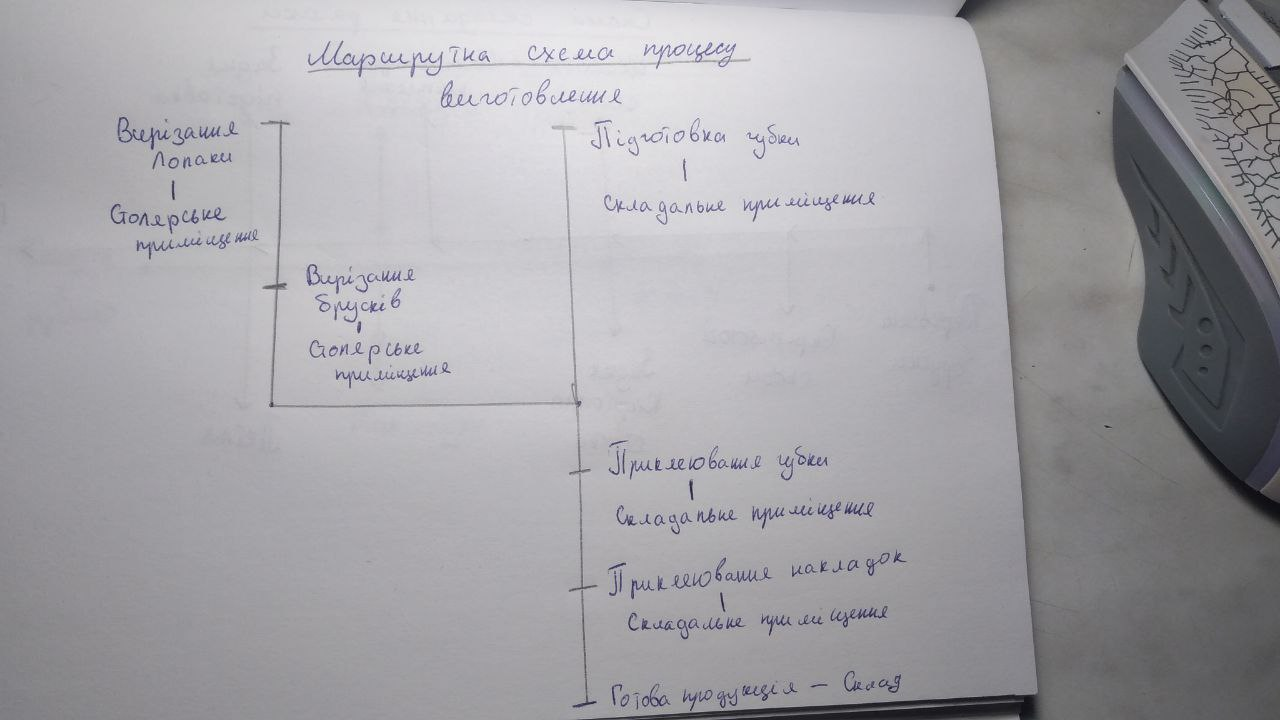 Маршрутна схема процесу
виготовлення
Вирізання
Лопаки
Столярське
приміщення
Вирізання
брусків
Столярське
приміщення
Підготовка губки
Складальне приміщення
Приклеювання губки
Складальне приміщення
Приклеювання накладок
Складальне приміщення
Готова продукція — Склад